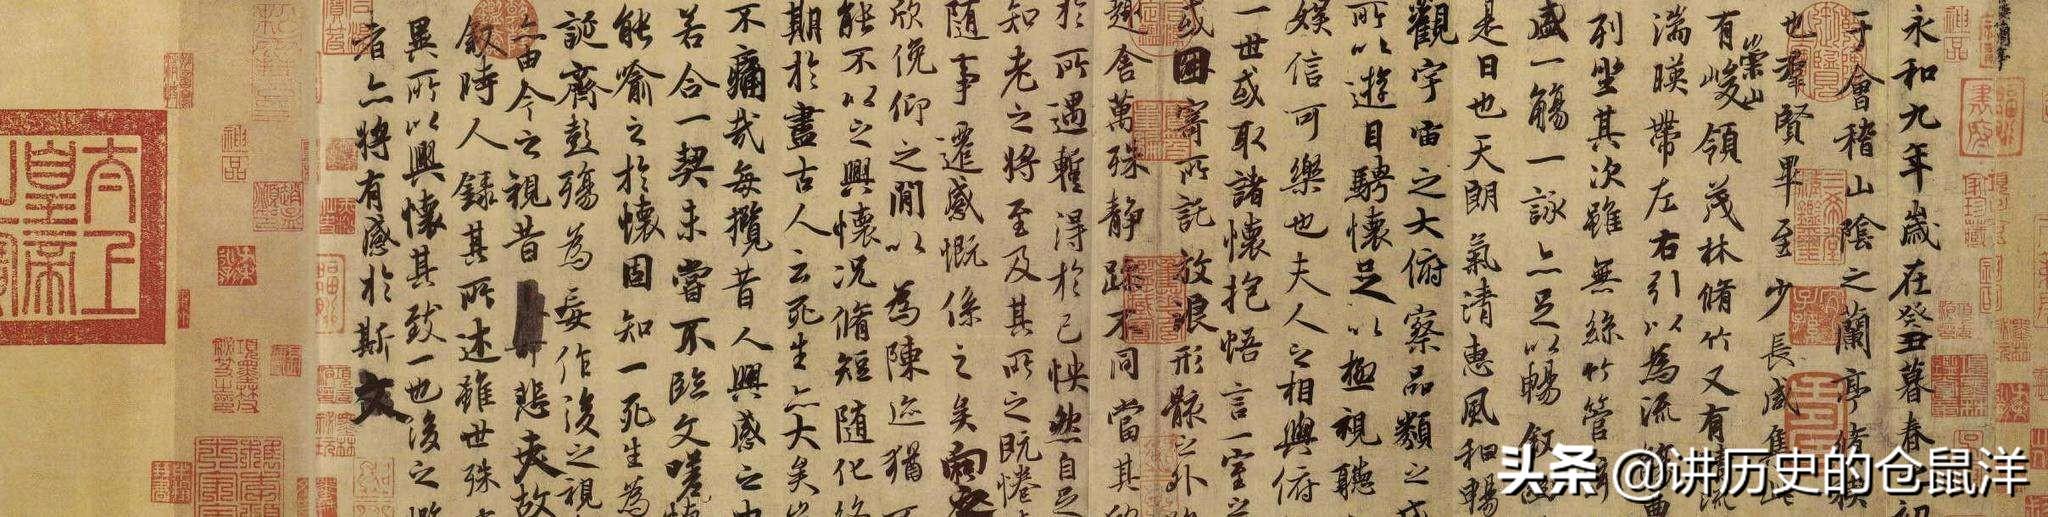 永和九年歲在癸丑暮春之初
于會稽山陰之蘭亭脩禊
也羣賢畢至少長咸集此
有崇山峻領茂林脩竹又有清流
湍暎帶左右引以為流觴
列坐其次雖無絲竹管弦
盛一觴一詠亦足以暢叙幽
是日也天朗氣清惠風和暢
觀宇宙之大俯察品類之盛
所以遊目騁懷足以極視聽
娛信可樂也夫人之相與俯
一世或取諸懷抱悟言一室之
或因寄所託放浪形骸之外
趣舍萬殊静躁不同當其欣
於所遇暫得於己怏然自足
知老之將至及其所之既惓
随事遷感慨係之矣向之
欣俛仰之閒以為陳迹猶不
能不以之興懷況脩短随化終
期於盡古人云死生亦大矣豈
不痛哉每攬昔人興感之由
若合一契未嘗不臨文嗟悼
能喻之於懷固知一死生為
誕齊彭殤為妄作後之視
亦由今之視昔悲夫故
叙時人錄其所述雖世殊
異所以興懷其致一也後之攬
者亦將有感於斯文
神品
太上皇帝
头条 @讲历史的仓鼠洋